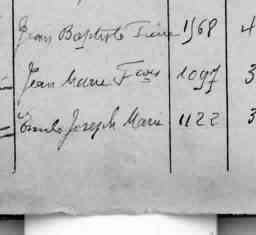 Jean Baptiste Pierre 1568 4
Jean Marie Fçois 1097 3
Emile Joseph Marie 1122 3